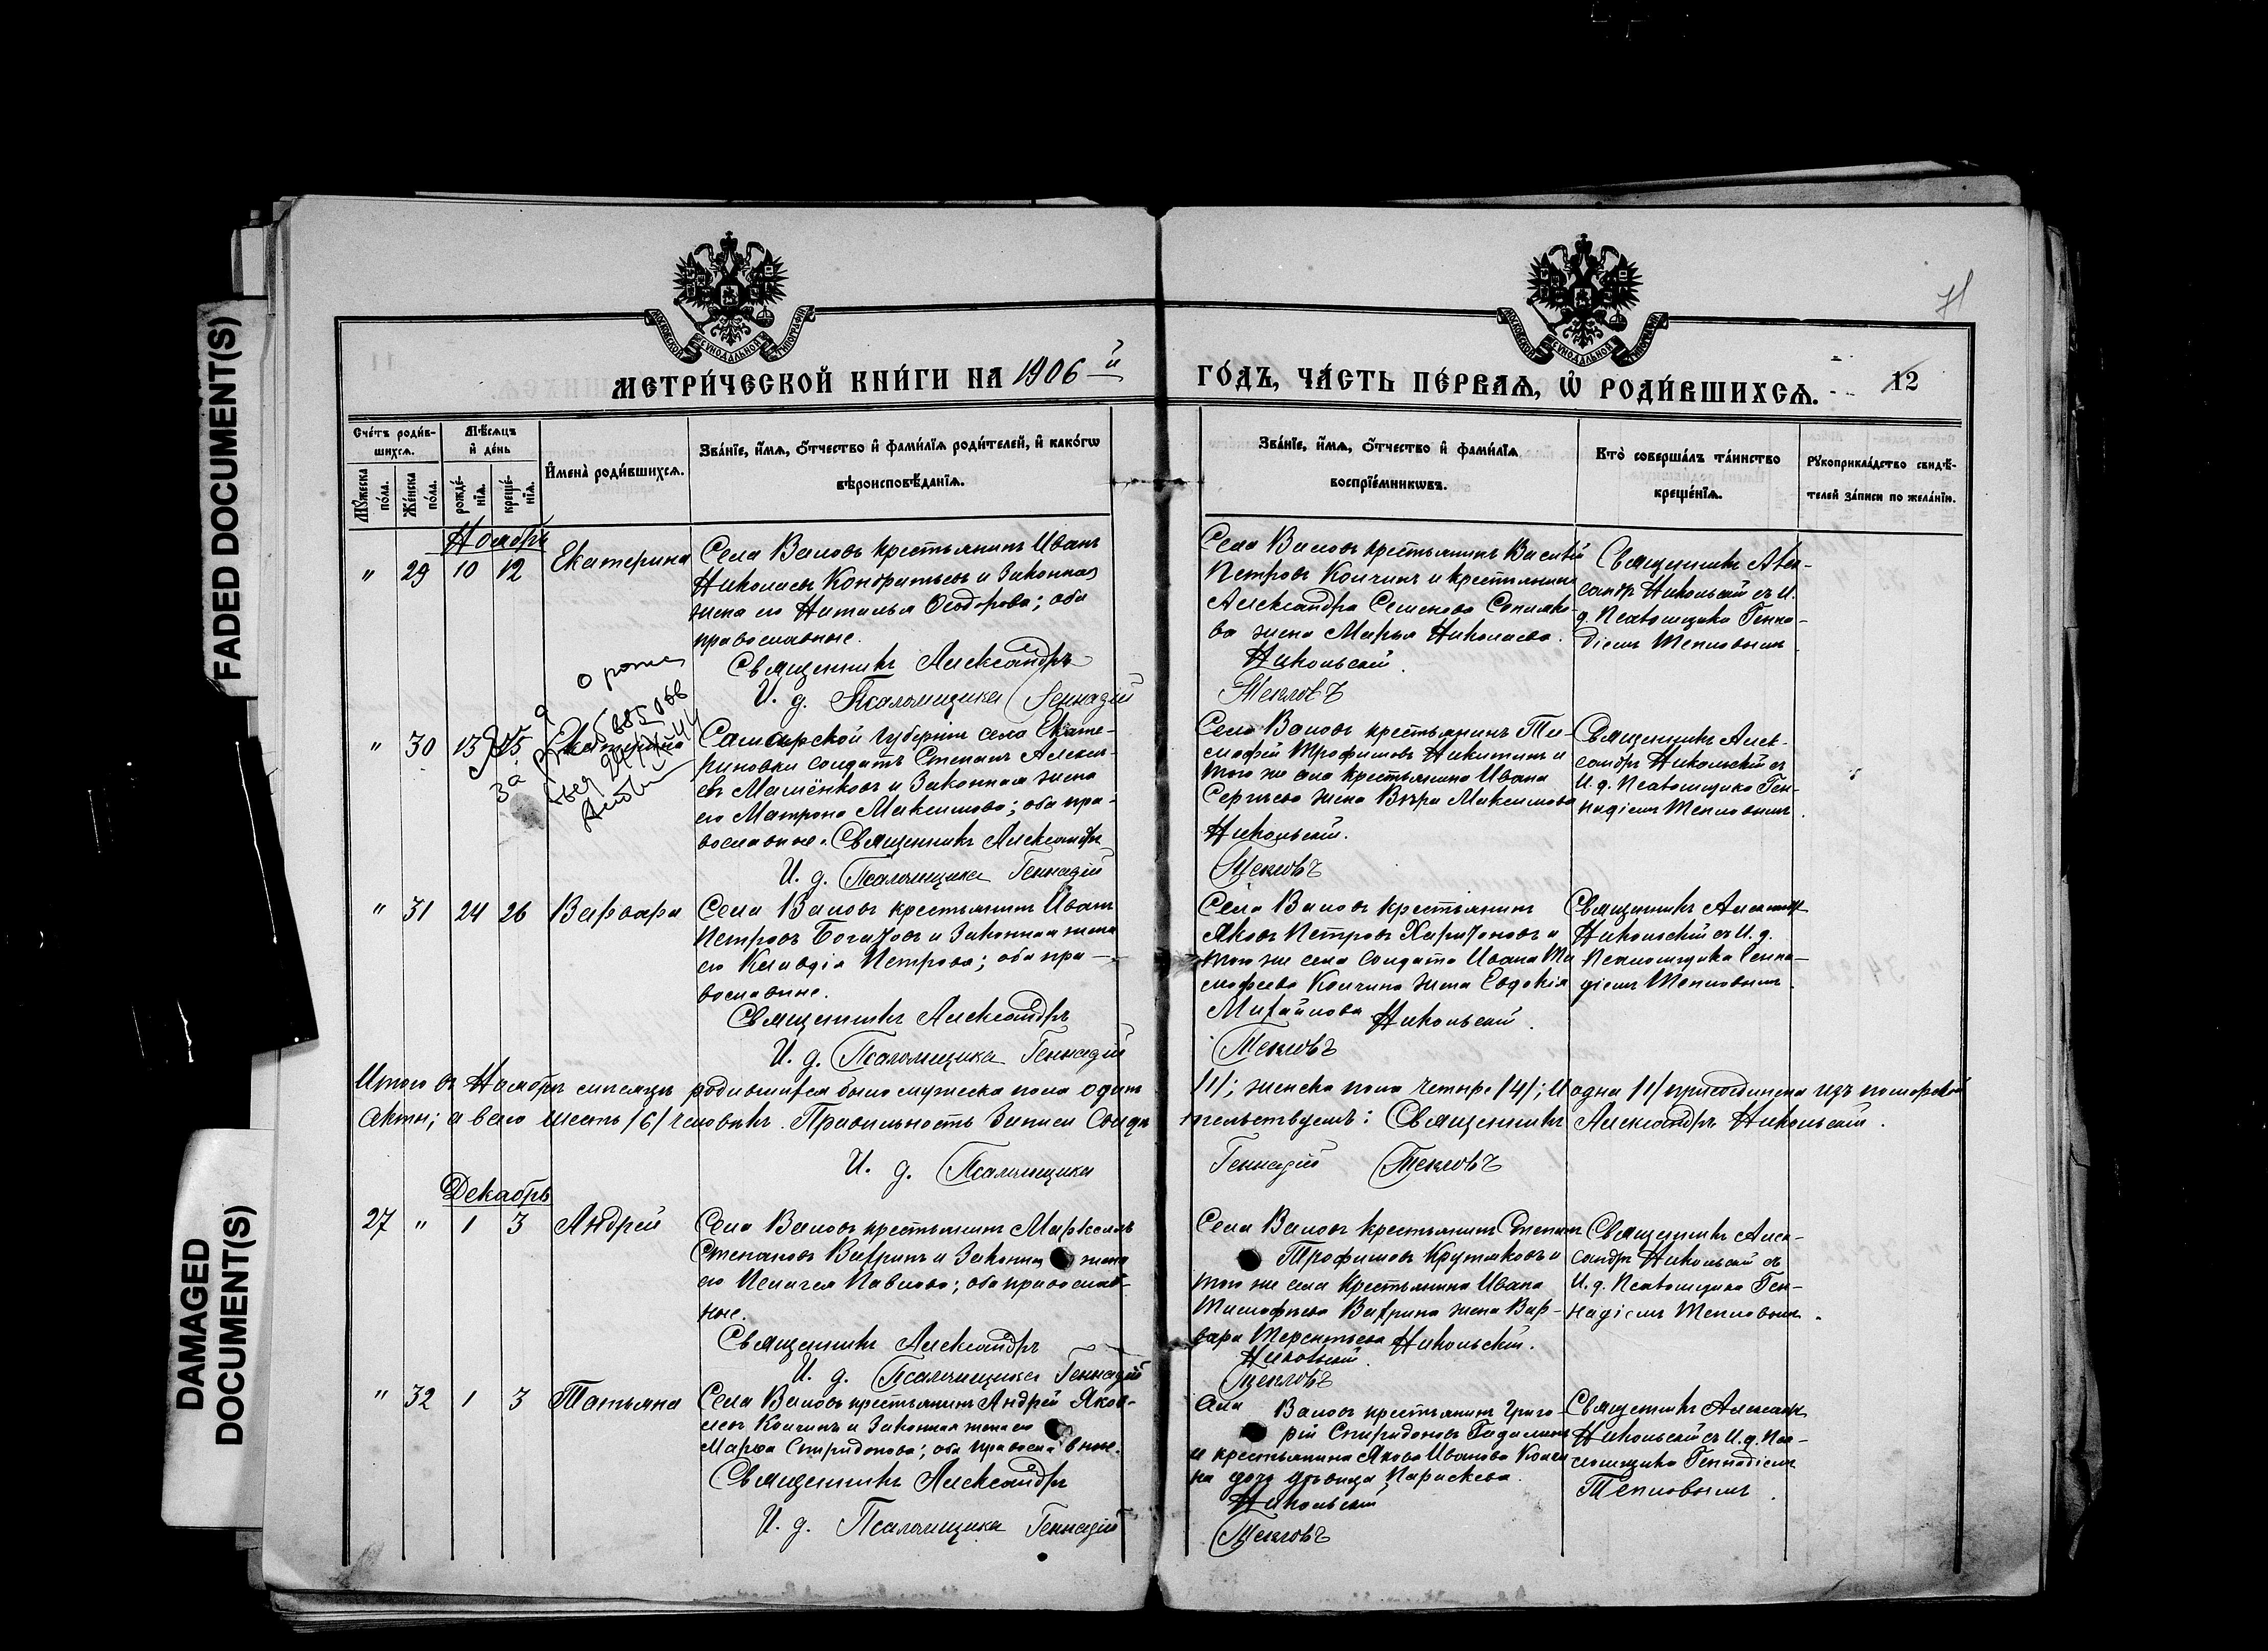 FADED DOCUMENT(S)
DAMAGED
DOCUMENT(S)
МОСКОВСКОЙ СѴНОДАЛЬНОЙ ТИПОГРАФІИ
МОСКОВСКОЙ СѴНОДАЛЬНОЙ ТИПОГРАФІИ
71
МЕТРИ́ЧЕСКОЙ КНИ́ГИ НА 1906 й
ГО́ДЪ, ЧА́СТЬ ПЕ́РВАѦ, Ѡ҆ РОДИ́ВШИХСѦ.
12
Сче́тъ роди́в-
шихсѧ.
Мѣ́сѧцъ
и҆ де́нь
Мꙋ́жеска
по́ла.
Же́нска
по́ла.
рожде́-
нїѧ.
креще́-
нїѧ.
И҆мена̀ роди́вшихсѧ.
Зва́нїе, и҆́мѧ, о҆́тчество и҆ фами́лїѧ роди́телей, и҆ како́гѡ
вѣроисповѣ́данїѧ.
Зва́нїе, и҆́мѧ, о҆́тчество и҆ фами́лїѧ
воспрїе́мникѡвъ.
Кто̀ соверша́лъ та́инство
креще́нїѧ.
Рꙋкоприкла́дство свидѣ́-
телей за́писи по жела́нїю.
Ноябрь
" 29 10 12 Екатерина
Села Валовъ крестьянинъ Иванъ
Николаевъ Кондратьевъ и законная
жена его Наталья Ѳеодорова; оба
православные.
Священникъ Александръ
И. д. Псаломщика Геннадій
Села Валовъ крестьянинъ Василій
Петровъ Колчинъ и крестьянина
Александра Семенова
ва жена Марья Николаева.
Никольскій.
Тепловъ
Священникъ Алек-
сандръ Никольскій съ И.
д. Псаломщика Генна-
діемъ Тепловымъ.
" 30 13 15 Екатерина
о рожд
за
Самарской губерніи села Екате-
риновки солдатъ Степанъ Алексѣ-
евъ и законная жена
его Матрона Максимова; оба пра-
вославные. Священникъ Александръ
И. д. Псаломщика Геннадій
Села Валовъ крестьянинъ Ти-
мофей Трофимовъ Никитинъ и
того же села крестьянина Ивана
Сергѣева жена Вѣра Максимова
Никольскій.
Тепловъ
Священникъ Алек-
сандръ Никольскій съ
И. д. Псаломщика Ген-
надіемъ Тепловымъ.
" 31 24 26 Варвара
Села Валовъ крестьянинъ Иванъ
Петровъ Богатовъ и законная жена
его Клавдія Петрова; оба пра-
вославные.
Священникъ Александръ
И. д. Псаломщика Геннадій
Села Валовъ крестьянинъ
Яковъ Петровъ Харитоновъ и
того же села солдата Ивана Ти
мофеева Колчина жена Евдокія
Михайлова Никольскій.
Тепловъ
Священникъ Александр
Никольскій съ И. д.
Псаломщика Генна-
діемъ Тепловымъ.
Итого въ Ноябрѣ мѣсяцѣ родившихся было мужеска пола одинъ
/1/; женска пола четыре /4/; и одна /1/ присоединена изъ поморской
секты; а всего шесть /6/ человѣкъ. Правильность записи свидѣ
тельствуемъ: Священникъ Александръ Никольскій.
И. д. Псаломщика
Геннадій Тепловъ
Декабрь
27 " 1 3 Андрей
Села Валовъ крестьянинъ
Степановъ Вавринъ и законная жена
его Пелагея Павлова; оба православ-
ные.
Священникъ Александръ
И. д. Псаломщика Геннадій
Села Валовъ крестьянинъ Степанъ
Трофимовъ Крутяковъ и
того же села крестьянина Ивана
Тимофеева Ваврина жена Вар-
вара Терентьева Никольскій.
Никольскій.
Тепловъ
Священникъ Алек-
сандръ Никольскій съ
И. д. Псаломщика Ген-
надіемъ Тепловымъ.
" 32 1 3 Татьяна
Села Валовъ крестьянинъ Андрей Яков-
левъ Колчинъ и законная жена его
Марѳа Спиридонова; оба православные.
Священникъ Александръ
И. д. Псаломщика Геннадій
Села Валовъ крестьянинъ Григо-
рій Спиридоновъ
и крестьянина Якова Иванова Колчи
на дочь дѣвица Параскева.
Никольскій
Тепловъ
Священникъ Александр
Никольскій съ И. д. Пса-
ломщика Геннадіемъ
Тепловымъ.